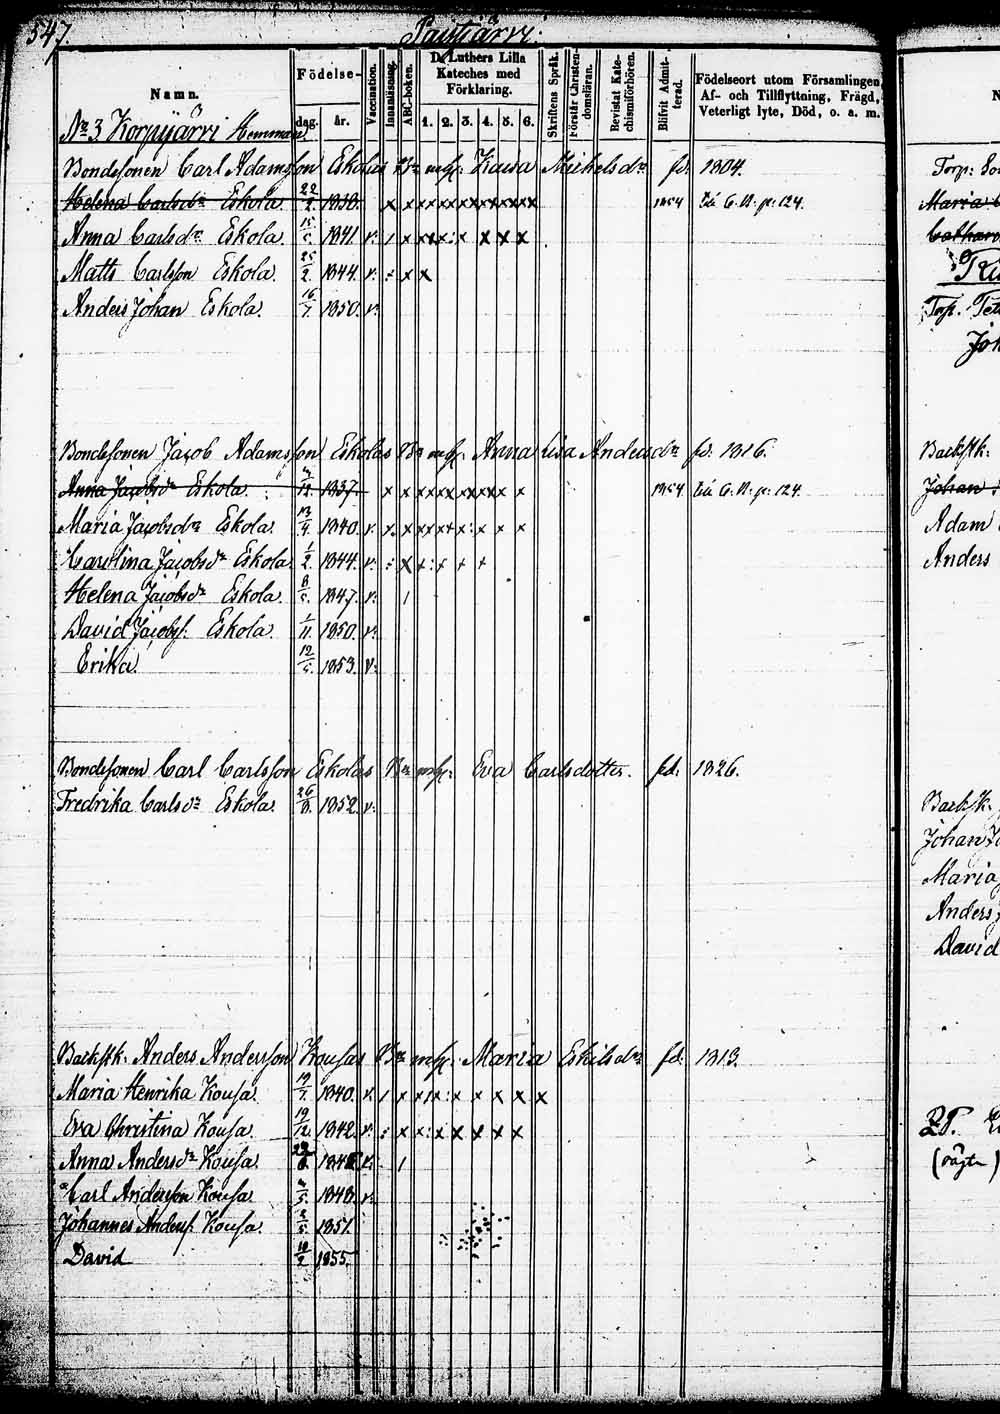 547.
Pautjärvi.
Namn.
Födelse-
dag.
år.
Vaccination.
Innanläsning.
ABC-boken.
D. Luthers Lilla
Kateches med
Förklaring.
1. 2. 3. 4. 5. 6.
Skriftens Språk.
Förstår Christen-
domsläran.
Bevistat Kate-
chismiförhören.
Blifvit Admit-
terad.
Födelseort utom Församlingen,
Af- och Tillflyttning, Frägd,
Veterligt lyte, Död, o. a. m.
N:o 3 Korpijärvi Hemman.
Bondesonen Carl Adamsson Eskolas Barn m. Kaisa Michelsdr fd. 1804.
Helena Carlsdr Eskola. 22/2. 1838. x x x x x x x x x x x x 1854 C. N. p. 124.
Anna Carlsdr Eskola 15/5. 1841 v. / x x x x : x x x x
Matts Carlsson Eskola. 25/2. 1844. v. : x x
Anders Johan Eskola. 16/7. 1850. v.
Bondesonen Jacob Adamsson Eskolas Bn m. Anna Lisa Andersdr fd. 1816.
Anna Jacobsdr Eskola. 1837. x x x x x x x x x x 1854 C. N. p. 124.
Maria Jacobsdr Eskola. 13/4. 1840. v. x. x x x x x : x x x
Carolina Jacobsdr Eskola. 1/2. 1844. v. : x x : x x x
Helena Jacobsdr Eskola. 8/5. 1847. v. /
David Jacobs. Eskola. 1/11. 1850. v.
Erika. 12/5. 1853. v.
Bondesonen Carl Carlsson Eskolas Bn m. Eva Carlsdotter. fd. 1826.
Fredrika Carlsdr Eskola. 26/8. 1852. v.
Backstk. Anders Andersson Kousas Bn m. Maria Eskilsdr fd. 1813.
Maria Henrika Kousa. 1840. v. / x x / x : x x x x x
Eva Christina Kousa. 19/12. 1842. v. : x x : x x x x x
Anna Andersdr Kousa. v. /
Carl Andersson Kousa 1848. v.
Johannes Anders. Kousa. 2/5. 1851.
David 10/2. 1855.
Torp.
Maria
Torp.
Backstk.
Johan
Adam
Anders
Backstk.
Johan
Maria
Anders
David